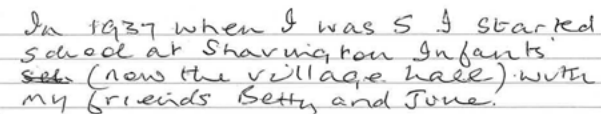 In 1937 when I was 5 I started
school at Shavington Infants'
(now the village hall) with
my friends Betty and June.